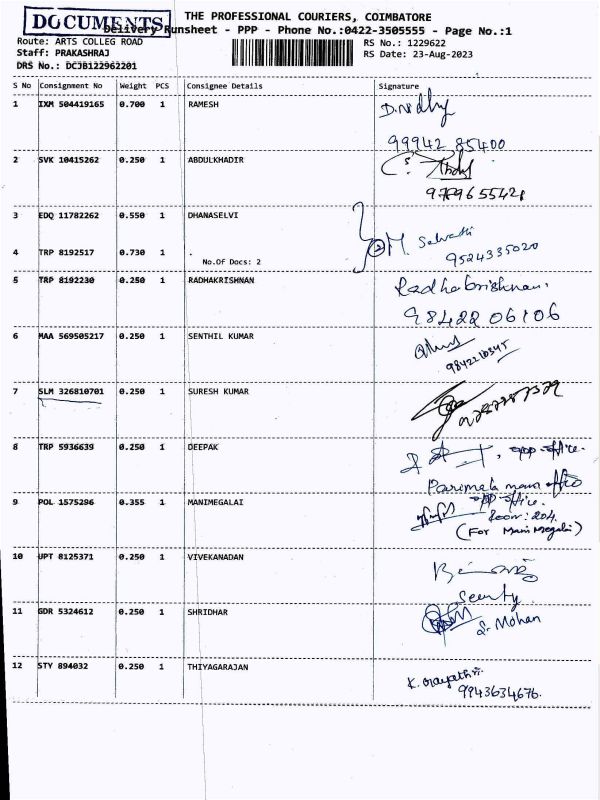 DOCUMENTS
THE PROFESSIONAL COURIERS, COIMBATORE
Delivery Runsheet - PPP - Phone No.:0422-3505555 - Page No.:1
Route: ARTS COLLEG ROAD
RS No.: 1229622
Staff: PRAKASHRAJ
RS Date: 23-Aug-2023
DRS No.: DCJB122962201
S No Consignment No Weight PCS Consignee Details Signature
1 IXM 504419165 0.700 1 RAMESH
99942 85400
2 SVK 10415262 0.250 1 ABDULKHADIR
9789655421
3 EDQ 11782262 0.550 1 DHANASELVI
4 TRP 8192517 0.730 1 .
No.Of Docs: 2
② M. Selvathi
9524335020
5 TRP 8192230 0.250 1 RADHAKRISHNAN
Radhakrishnan.
98422 06106
6 MAA 569505217 0.250 1 SENTHIL KUMAR
9842210345
7 SLM 326810701 0.250 1 SURESH KUMAR
8 TRP 5936639 0.250 1 DEEPAK
, opp-office.
Parimala main office
9 POL 1575296 0.355 1 MANIMEGALAI
opp office.
Room: 204.
(For Manimegalai)
10 UPT 8125371 0.250 1 VIVEKANADAN
Security
11 GDR 5324612 0.250 1 SHRIDHAR
S. Mohan
12 STY 894032 0.250 1 THIYAGARAJAN
9943634676.